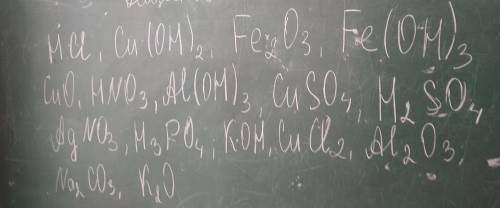 HCl, Cu(OH)₂, Fe₂O₃, Fe(OH)₃
CuO, HNO₃, Al(OH)₃, CuSO₄, H₂SO₄
AgNO₃, H₃PO₄, KOH, CuCl₂, Al₂O₃,
Na₂CO₃, K₂O